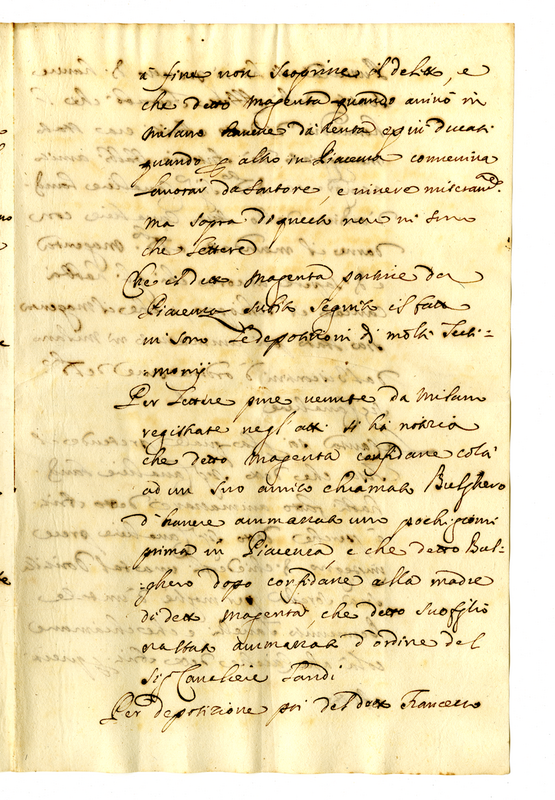 a fine non scoprisse il delitto, e
che detto Magenta quando arrivò in
Milano havesse da trenta e più ducati
quando per altro in Piacenza conveniva
lavorar da sartore, e vivere miseram.te
ma sopra di questo non vi sono
che lettere
Che il detto Magenta partisse da
Piacenza subito seguito il fatto
vi sono le depositioni di molti Testi=
=monij
Per lettere pure venute da Milano
registrate negl'atti si ha notizia
che detto Magenta confidasse colà
ad un suo amico chiamato Bulghero
d'havere ammazzato uno pochi giorni
prima in Piacenza, e che detto Bul-
-ghero dopo confidasse alla madre
di detto Magenta, che detto suo figlio
ammazzato d'ordine del
Sig.r Cavaliere Landi
Per depositione poi del dott. Francesco